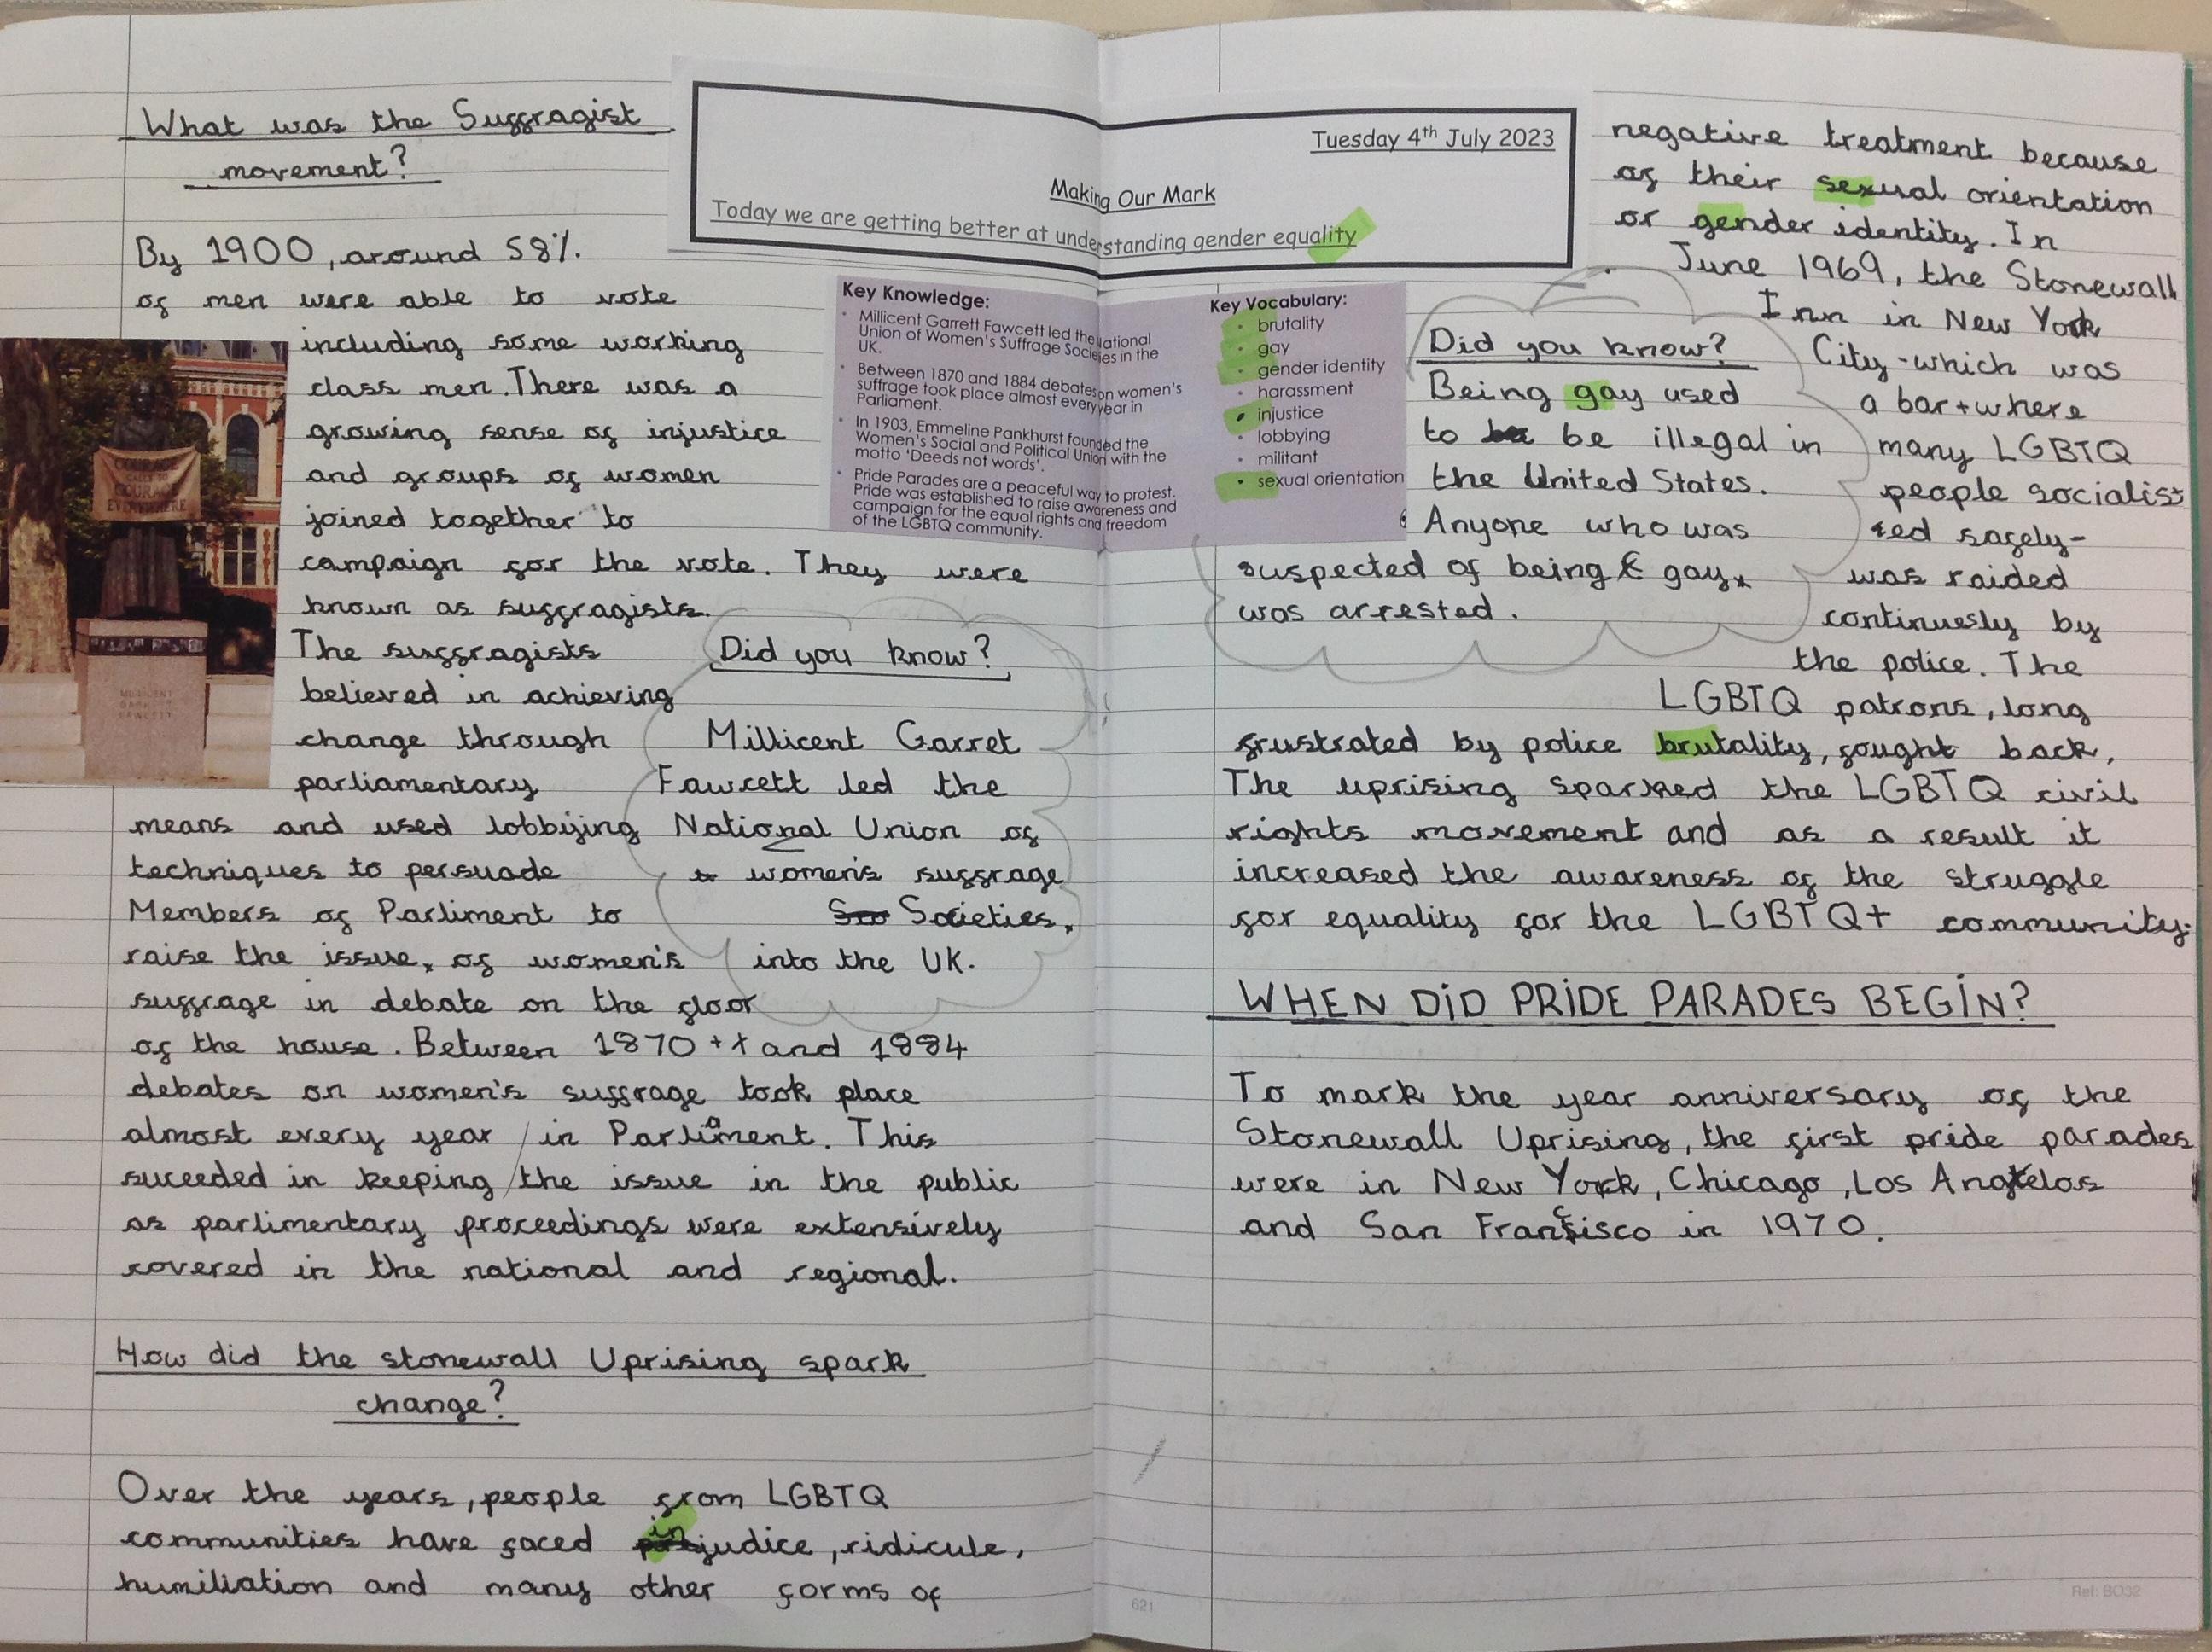 What was the Suffragist
movement?
By 1900, around 58%
of men were able to vote
including some working
class men. There was a
growing sense of injustice
and groups of women
joined together to
campaign for the vote. They were
known as suffragists.
The suffragists
believed in achieving
change through
parliamentary
means and used lobbying
techniques to persuade
Members of Parliment to
raise the issue, of women's
suffrage in debate on the floor
of the house. Between 1870 and 1884
debates on women's suffrage took place
almost every year in Parliament. This
suceeded in keeping the issue in the public
as parlimentary proceedings were extensively
covered in the national and regional.
COURAGE
CALLS TO
COURAGE
EVERYWHERE
MILLICENT
GARRETT
FAWCETT
Did you know?
Millicent Garret
Fawcett led the
National Union of
women's suffrage
Societies,
into the UK.
How did the stonewall Uprising spark
change?
Over the years, people from LGBTQ
communities have faced injudice, ridicule,
humiliation and many other forms of
Tuesday 4th July 2023
Making Our Mark
Today we are getting better at understanding gender equality
Key Knowledge:
• Millicent Garrett Fawcett led the National
Union of Women's Suffrage Societies in the
UK.
• Between 1870 and 1884 debates on women's
suffrage took place almost every year in
Parliament.
• In 1903, Emmeline Pankhurst founded the
Women's Social and Political Union with the
motto 'Deeds not words'.
• Pride Parades are a peaceful way to protest.
Pride was established to raise awareness and
campaign for the equal rights and freedom
of the LGBTQ community.
Key Vocabulary:
• brutality
• gay
• gender identity
• harassment
• injustice
• lobbying
• militant
• sexual orientation
negative treatment because
of their sexual orientation
or gender identity. In
June 1969, the Stonewall
Inn in New York
City -which was
a bar + where
many LGBTQ
people socialis
ed safely-
was raided
continuesly by
the police. The
LGBTQ patrons, long
frustrated by police brutality, fought back.
The uprising sparked the LGBTQ civil
rights movement and as a result it
increased the awareness of the struggle
for equality for the LGBTQ+ community.
Did you know?
Being gay used
to be illegal in
the United States.
Anyone who was
suspected of being gay
was arrested.
WHEN DiD PRiDE PARADES BEGiN?
To mark the year anniversary of the
Stonewall Uprising, the first pride parades
were in New York, Chicago, Los Angelos
and San Francisco in 1970.
621
Ref: BO32